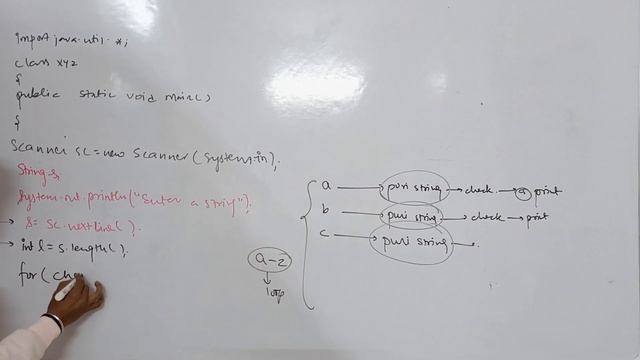 import java.util.*;
class XYZ
{
public static void main()
{
Scanner sc=new Scanner(System.in);
String s;
System.out.println("Enter a string");
→ s= sc.nextLine().
→ int l=s.length();
for( cha
a → puri string → check → a print
b → puri string → check → print
c → puri string → .
a-z
↓
loop